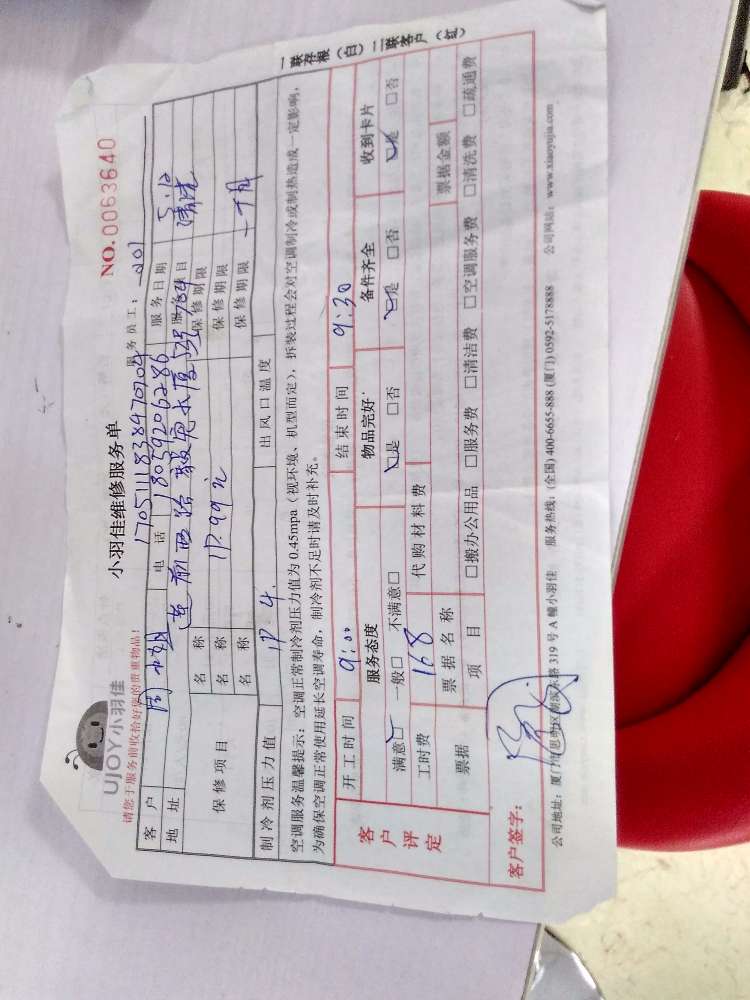 UJOY小羽佳
小羽佳维修服务单
NO.0063640
请您于服务前收拾好您的贵重物品!
1705111838470704
服务员工: 201
客户 周小姐 电话 18059206286 服务日期 5.12
地址 莲前西路 服务项目 清洗
保修项目 名称 保修期限
名称 保修期限
名称 保修期限 一个月
制冷剂压力值 出风口温度
空调服务温馨提示:空调正常制冷剂压力值为 0.45mpa(视环境、机型而定),拆装过程会对空调制冷或制热造成一定影响,
为确保空调正常使用延长空调寿命,制冷剂不足时请及时补充。
客户评定
开工时间 9:00 结束时间 9:30
服务态度 物品完好 备件齐全 收到卡片
满意□ 一般□ 不满意□ □是 □否 □是 □否 □是 □否
工时费 168 代购材料费
票据 票据名称 票据金额
项目 □搬办公用品 □服务费 □清洁费 □空调服务费 □清洗费 □疏通费
客户签字:
公司地址:厦门市思明区湖滨东路 319 号 A 幢小羽佳 服务热线:(全国) 400-6655-888 (厦门) 0592-5178888 公司网站:www.xiaoyujia.com
一联存根(白)二联客户(红)